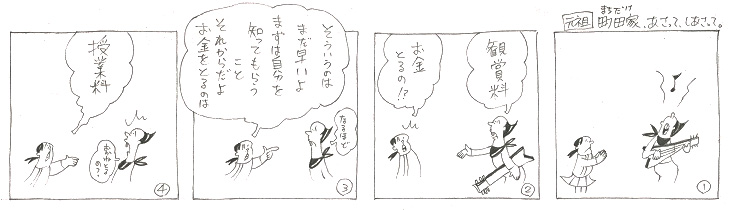 元祖 町田家、あさって、しあさって。
まちだけ
①
観賞料
お金
とるの!?
②
そういうのは
まだ早いよ
まずは自分を
知ってもらう
こと
それからだよ
お金をとるのは
なるほど
③
授業料
おかねとる
の?
④